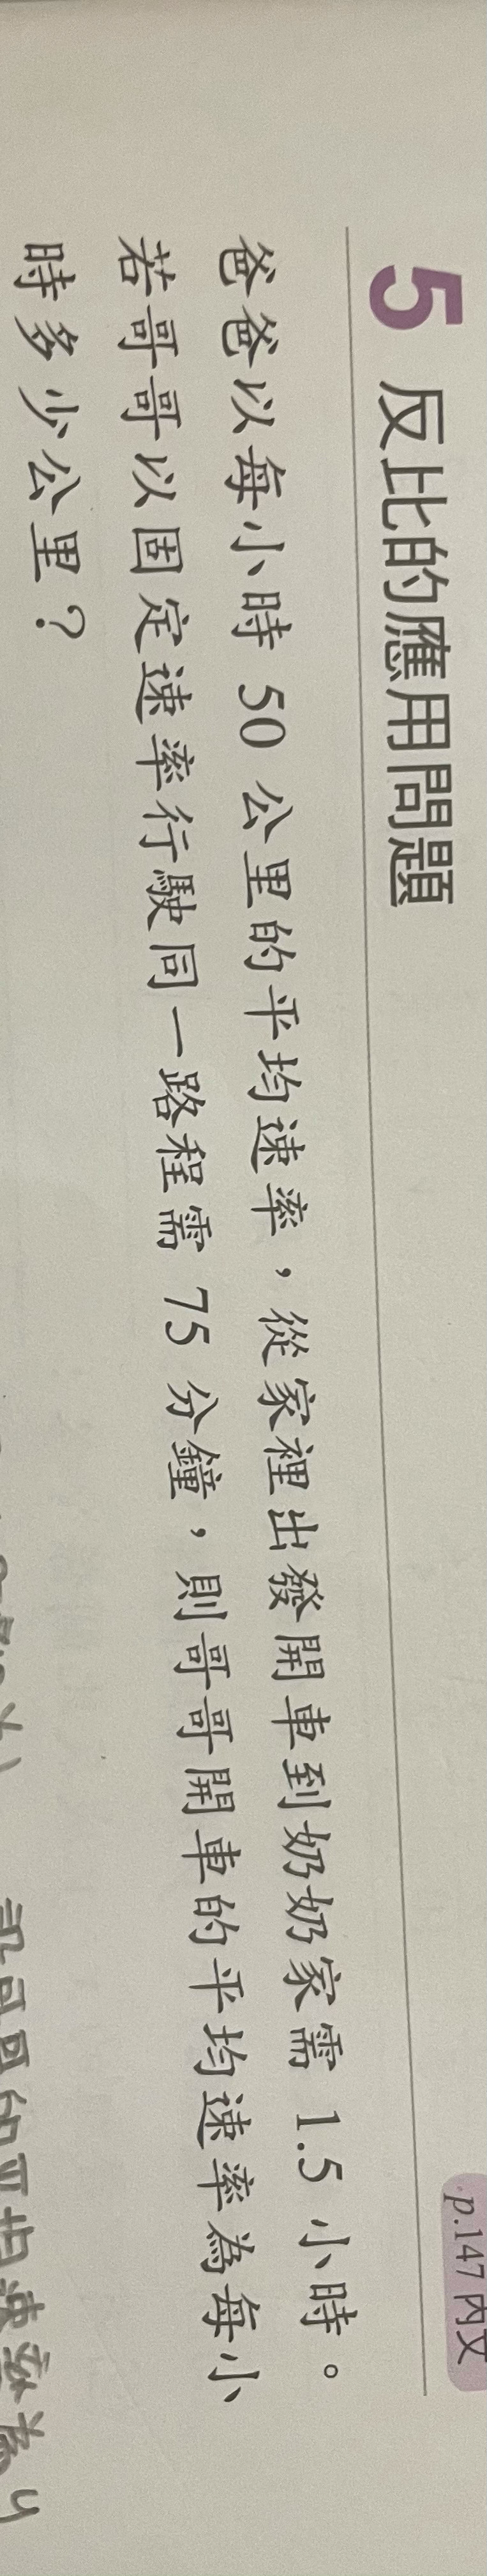 5 反比的應用問題
p.147 內文
爸爸以每小時 50 公里的平均速率，從家裡出發開車到奶奶家需 1.5 小時。
若哥哥以固定速率行駛同一路程需 75 分鐘，則哥哥開車的平均速率為每小
時多少公里？